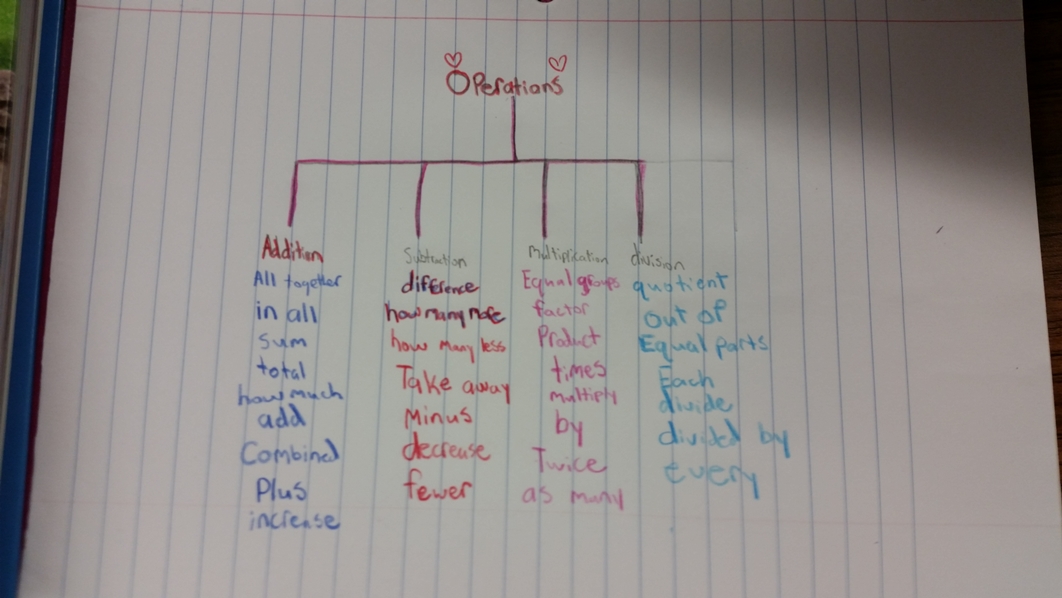 Operations
Addition
All together
in all
sum
total
how much
add
Combined
Plus
increase
Subtraction
difference
how many more
how many less
Take away
Minus
decrease
fewer
Multiplication
Equal groups
factor
Product
times
multiply
by
Twice
as many
division
quotient
out of
Equal parts
Each
divide
divided by
every